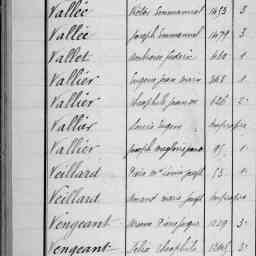 Vallée Victor Emmanuel 1493 3
Vallée Joseph Emmanuel 1479 3
Vallet Ambroise frédéric 460 1
Vallier Eugène jean marie 368 1
Vallier théophile jean m 126 2
Vallier Louis Eugène
Vallier joseph 95 1
Veillard Pierre m louis joseph 53 1
Veillard Amand marie joseph
Vengeant 1239 3
Vengeant Félix théophile 3